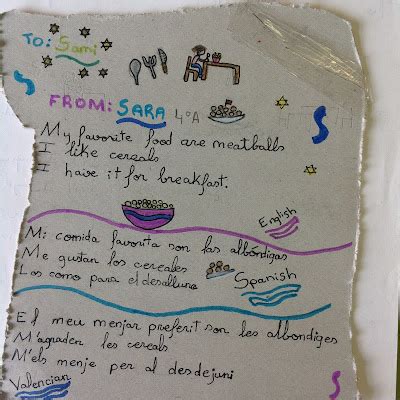 TO: Sami
FROM: SARA 4ºA
My favorite food are meatballs
I like cereals
I have it for breakfast.
English
Mi comida favorita son las albóndigas
Me gustan los cereales
Los como para el desalluno
Spanish
El meu menjar preferit son les albondiges
M'agraden les cereals
M'els menje per al desdejuni
Valencian